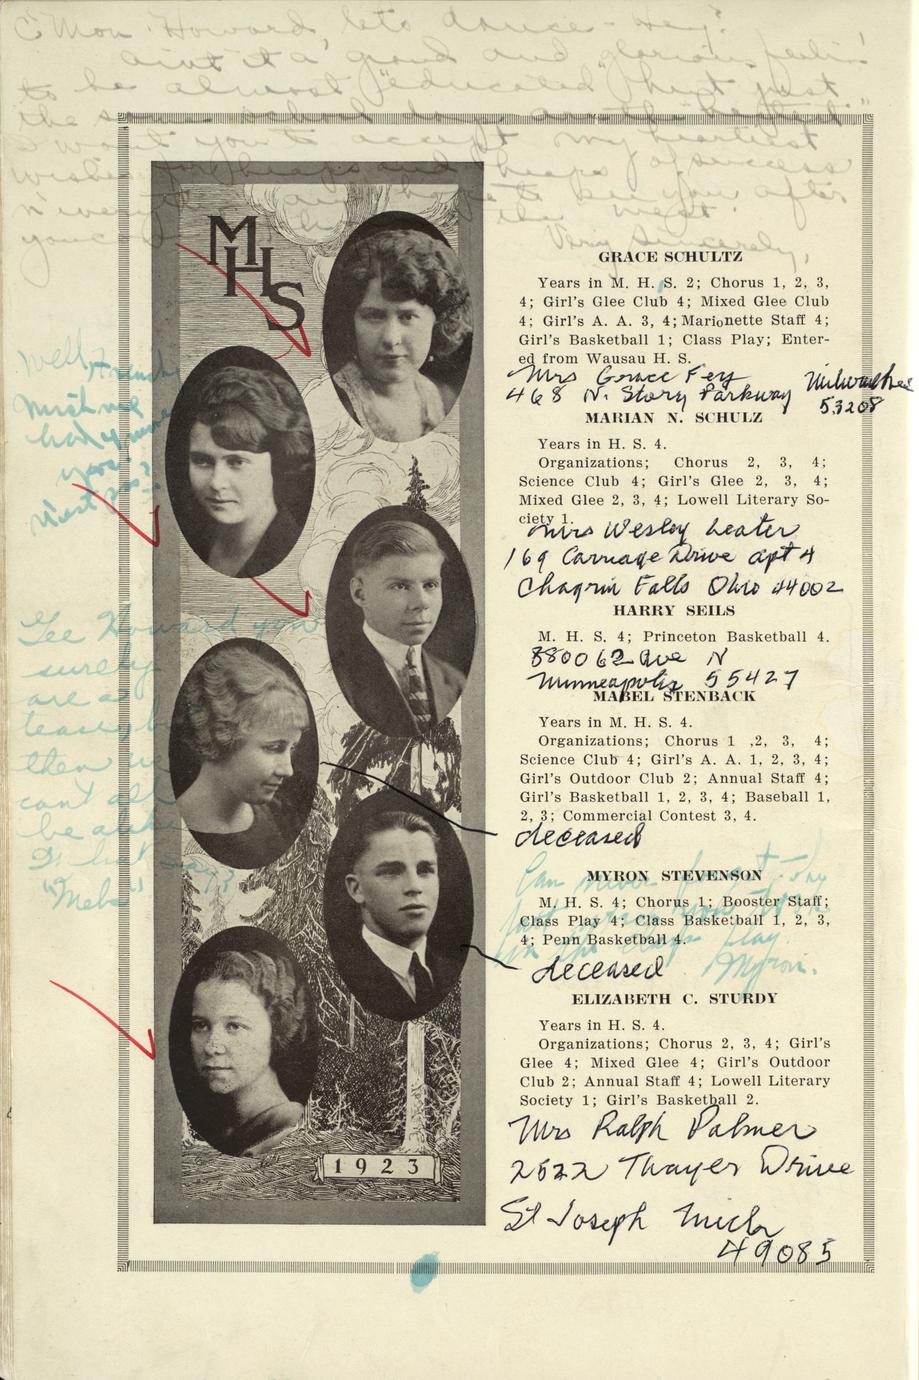 C'Mon Howard, lets dance - Hey?
aint it a grand and glorious feelin'
to be almost "educated"
the same school day
I want you to accept my heartiest
wishes for heaps and heaps of success
to see you after
the west.
Very Sincerely,
MHS
GRACE SCHULTZ
Years in M. H. S. 2; Chorus 1, 2, 3,
4; Girl's Glee Club 4; Mixed Glee Club
4; Girl's A. A. 3, 4; Marionette Staff 4;
Girl's Basketball 1; Class Play; Enter-
ed from Wausau H. S.
Mrs Grace Fey
468 N. Story Parkway Milwaukee
53208
MARIAN N. SCHULZ
Years in H. S. 4.
Organizations; Chorus 2, 3, 4;
Science Club 4; Girl's Glee 2, 3, 4;
Mixed Glee 2, 3, 4; Lowell Literary So-
ciety 1.
Mrs Wesley Leater
169 Carriage Drive apt 4
Chagrin Falls Ohio 44002
HARRY SEILS
M. H. S. 4; Princeton Basketball 4.
3800 62 Ave N
Minneapolis 55427
MABEL STENBACK
Years in M. H. S. 4.
Organizations; Chorus 1 ,2, 3, 4;
Science Club 4; Girl's A. A. 1, 2, 3, 4;
Girl's Outdoor Club 2; Annual Staff 4;
Girl's Basketball 1, 2, 3, 4; Baseball 1,
2, 3; Commercial Contest 3, 4.
deceased
MYRON STEVENSON
M. H. S. 4; Chorus 1; Booster Staff;
Class Play 4; Class Basketball 1, 2, 3,
4; Penn Basketball 4.
deceased
Can never forget
play.
Myron.
ELIZABETH C. STURDY
Years in H. S. 4.
Organizations; Chorus 2, 3, 4; Girl's
Glee 4; Mixed Glee 4; Girl's Outdoor
Club 2; Annual Staff 4; Lowell Literary
Society 1; Girl's Basketball 2.
Mrs Ralph Palmer
2522 Thayer Drive
St Joseph Mich
49085
Well
Gee Howard you
surely
are a
tease, but
then we
can't all
be alike
say?
"Mabe"
1923